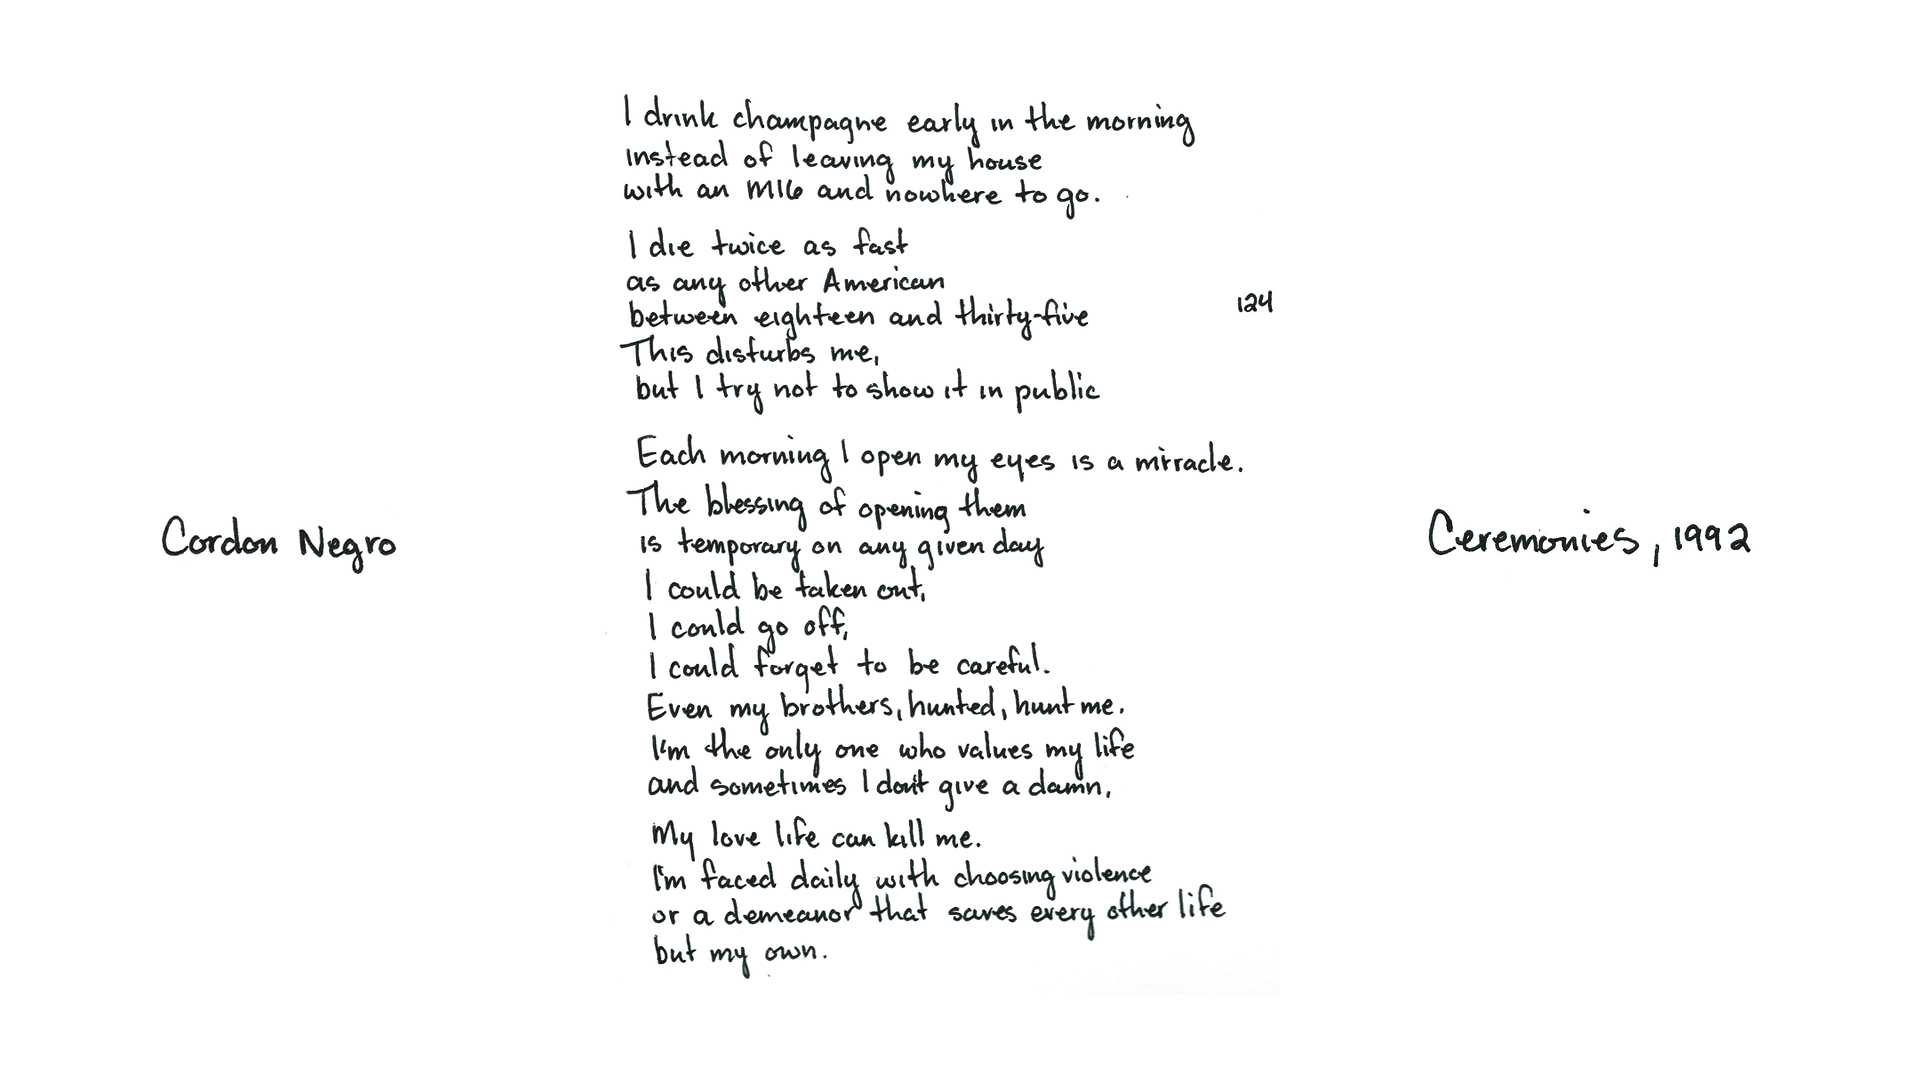 I drink champagne early in the morning
instead of leaving my house
with an M16 and nowhere to go.
I die twice as fast
as any other American
between eighteen and thirty-five
124
This disturbs me,
but I try not to show it in public
Each morning I open my eyes is a miracle.
The blessing of opening them
Cordon Negro
is temporary on any given day
Ceremonies, 1992
I could be taken out,
I could go off,
I could forget to be careful.
Even my brothers, hunted, hunt me.
I'm the only one who values my life
and sometimes I don't give a damn,
My love life can kill me.
I'm faced daily with choosing violence
or a demeanor that saves every other life
but my own.